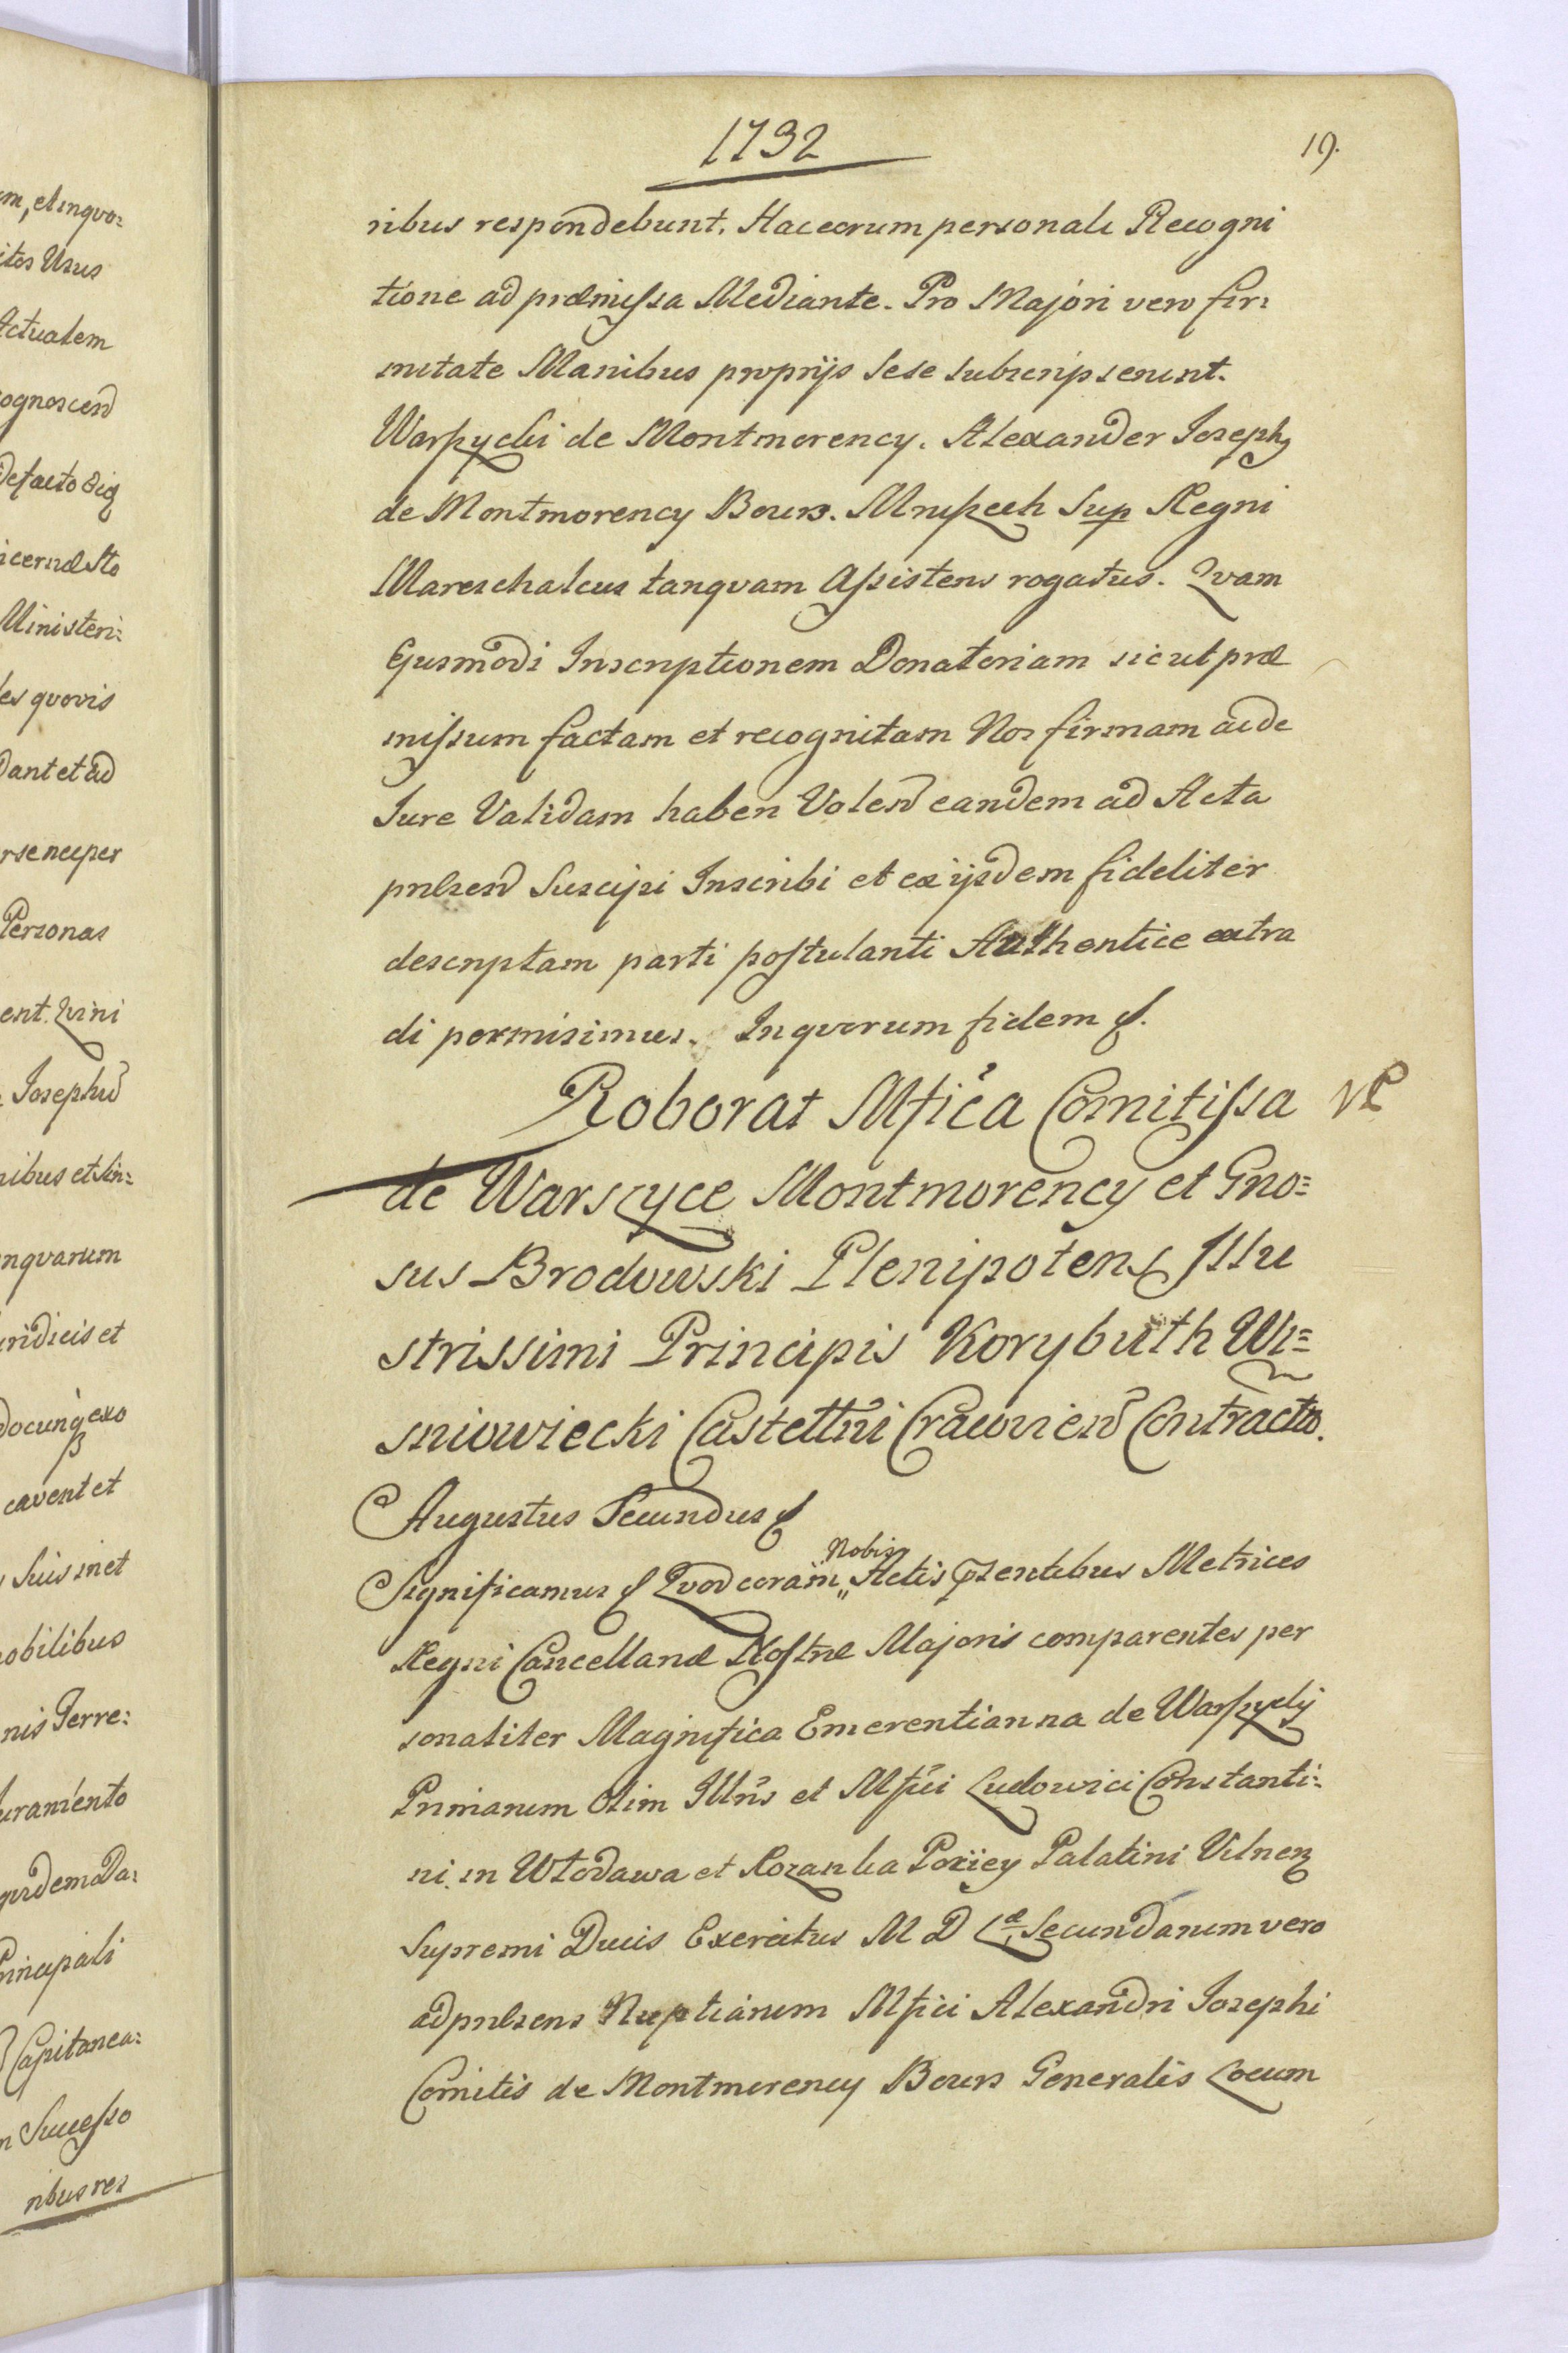 m, et inquo=
ites Usus
Actualem
ognoscend
Ministeri=
es quovis
Dant et ad
rse nec per
Personas
ent. Qvini
Josephū
nibus et Sin=
nqvarum
uridicis et
cavent et
Suismet
obilibus
nis Terre=
uramento
Principali
Capitanea=
n Successo
ribus res
1732
19.
ribus respondebunt. Hac eorum personali Recogni
tione ad præmissa Mediante. Pro Majori vero fir=
mitate Manibus proprijs Sese Subscripserunt.
Warszycki de Montmorency. Alexander Joseph9
de Montmorency Bours. Mniszech Sup Regni
Mareschalcus tanqvam Assistens rogatus. Qvam
Ejusmodi Inscriptionem Donatoriam sicut præ
missum factam et recognitam Nos firmam ac de
Jure Validam haben Volend eandem ad Acta
pnlsend Suscipi Inscribi et ex ijsdem fideliter
descriptam parti postulanti Authentice extra
di permisimus. Inqvorum fidem &.
Roborat Mfica Comitissa
de Warszyce Montmorency et Gno=
sus Brodowski Plenipotens Illu
strissimi Principis Korybuth Wi=
sniowiecki Castellni Cracovien Contracto.
Augustus Secundus &
Significamus & Qvod coram Nobis Actis psentibus Metrices
Regni Cancellariæ Nostræ Majoris comparentes per
sonaliter Magnifica Emerentianna de Warszyckij
Primarum Olim Illris et Mfici Ludovici Constanti=
ni in Włodawa et Rozanka Pociey Palatini Vilnen
Supremi Ducis Exercitus M D L Secundarum vero
ad pnlsens Nuptiarum Mfici Alexandri Josephi
Comitis de Montmorency Bours Generalis Locum